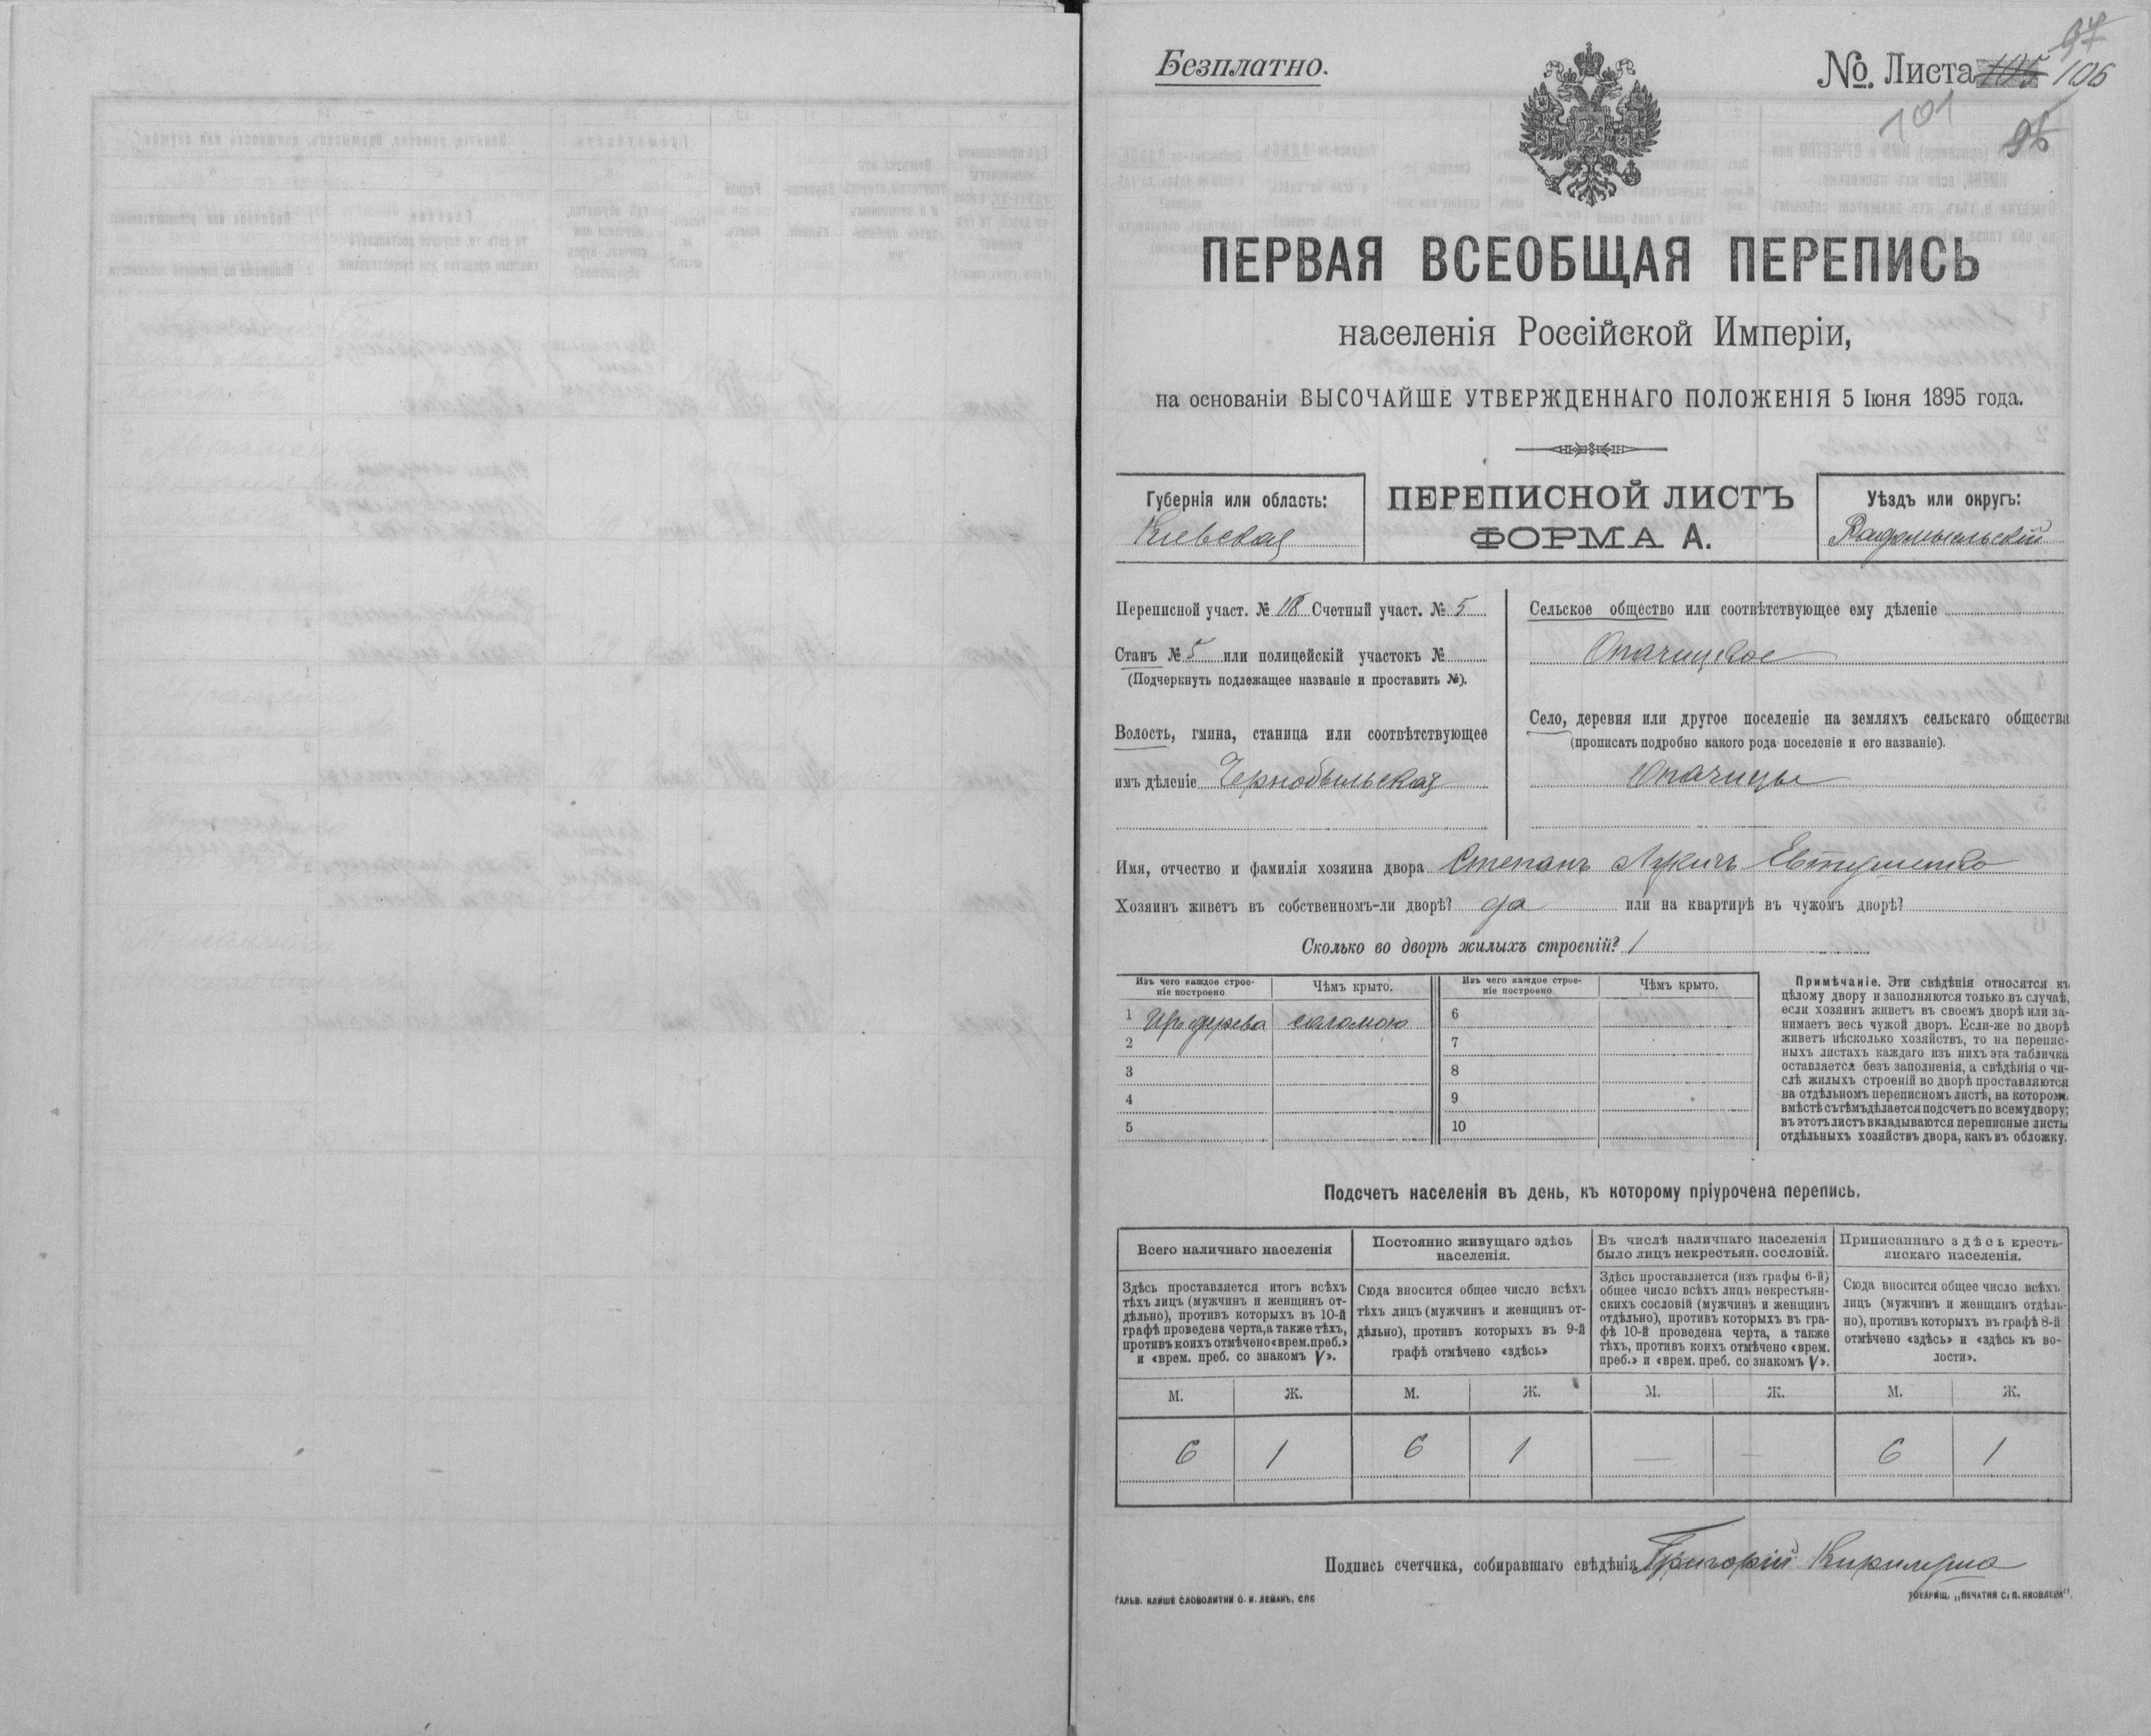 Безплатно.
№. Листа 105 106
97
101
96
ПЕРВАЯ ВСЕОБЩАЯ ПЕРЕПИСЬ
населенія Россійской Имперіи,
на основаніи ВЫСОЧАЙШЕ УТВЕРЖДЕННАГО ПОЛОЖЕНІЯ 5 Іюня 1895 года.
Губернія или область:
Кіевская
ПЕРЕПИСНОЙ ЛИСТЪ
ФОРМА А.
Уѣздъ или округъ:
Радомысльскій
Переписной участ. № 18 Счетный участ. № 5
Станъ № 5 или полицейскій участокъ №
(Подчеркнуть подлежащее названіе и проставить №).
Волость, гмина, станица или соотвѣтствующее
имъ дѣленіе Чернобыльская
Сельское общество или соотвѣтствующее ему дѣленіе
Опачицкое
Село, деревня или другое поселеніе на земляхъ сельскаго общества
(прописать подробно какого рода поселеніе и его названіе).
Опачицы
Имя, отчество и фамилія хозяина двора Степанъ Лукичъ Евтушенко
Хозяинъ живетъ въ собственномъ-ли дворѣ? да или на квартирѣ въ чужомъ дворѣ?
Сколько во дворѣ жилыхъ строеній? 1
Изъ чего каждое строе-
ніе построено
Чѣмъ крыто.
Изъ чего каждое строе-
ніе построено
Чѣмъ крыто.
1 Изъ дерева соломою 6
2 7
3 8
4 9
5 10
Примѣчаніе. Эти свѣдѣнія относятся къ
цѣлому двору и заполняются только въ случаѣ,
если хозяинъ живетъ въ своемъ дворѣ или за-
нимаетъ весь чужой дворъ. Если-же во дворѣ
живетъ нѣсколько хозяйствъ, то на перепис-
ныхъ листахъ каждаго изъ нихъ эта табличка
оставляется безъ заполненія, а свѣдѣнія о чи-
слѣ жилыхъ строеній во дворѣ проставляются
на отдѣльномъ переписномъ листѣ, на которомъ
вмѣстѣ съ тѣмъ дѣлается подсчетъ по всему двору;
въ этотъ листъ вкладываются переписные листы
отдѣльныхъ хозяйствъ двора, какъ въ обложку.
Подсчетъ населенія въ день, къ которому пріурочена перепись.
Всего наличнаго населенія
Постоянно живущаго здѣсь
населенія.
Въ числѣ наличнаго населенія
было лицъ некрестьян. сословій.
Приписаннаго здѣсь кресть-
янскаго населенія.
Здѣсь проставляется итогъ всѣхъ
тѣхъ лицъ (мужчинъ и женщинъ от-
дѣльно), противъ которыхъ въ 10-й
графѣ проведена черта, а также тѣхъ,
противъ коихъ отмѣчено «врем. преб.»
и «врем. преб. со знакомъ V».
Сюда вносится общее число всѣхъ
тѣхъ лицъ (мужчинъ и женщинъ от-
дѣльно), противъ которыхъ въ 9-й
графѣ отмѣчено «здѣсь»
Здѣсь проставляется (изъ графы 6-й)
общее число всѣхъ лицъ некрестьян-
скихъ сословій (мужчинъ и женщинъ
отдѣльно), противъ которыхъ въ гра-
фѣ 10-й проведена черта, а также
тѣхъ, противъ коихъ отмѣчено «врем.
преб.» и «врем. преб. со знакомъ V».
Сюда вносится общее число всѣхъ
лицъ (мужчинъ и женщинъ отдѣль-
но), противъ которыхъ въ графѣ 8-й
отмѣчено «здѣсь» и «здѣсь къ во-
лости».
М. Ж. М. Ж. М. Ж. М. Ж.
6 1 6 1 — — 6 1
Подпись счетчика, собиравшаго свѣдѣнія Григорій
ГАЛЬВ. КЛИШЕ СЛОВОЛИТНИ О. И. ЛЕМАНЪ, СПБ
ТОВАРИЩ. „ПЕЧАТНЯ С. П. ЯКОВЛЕВА".